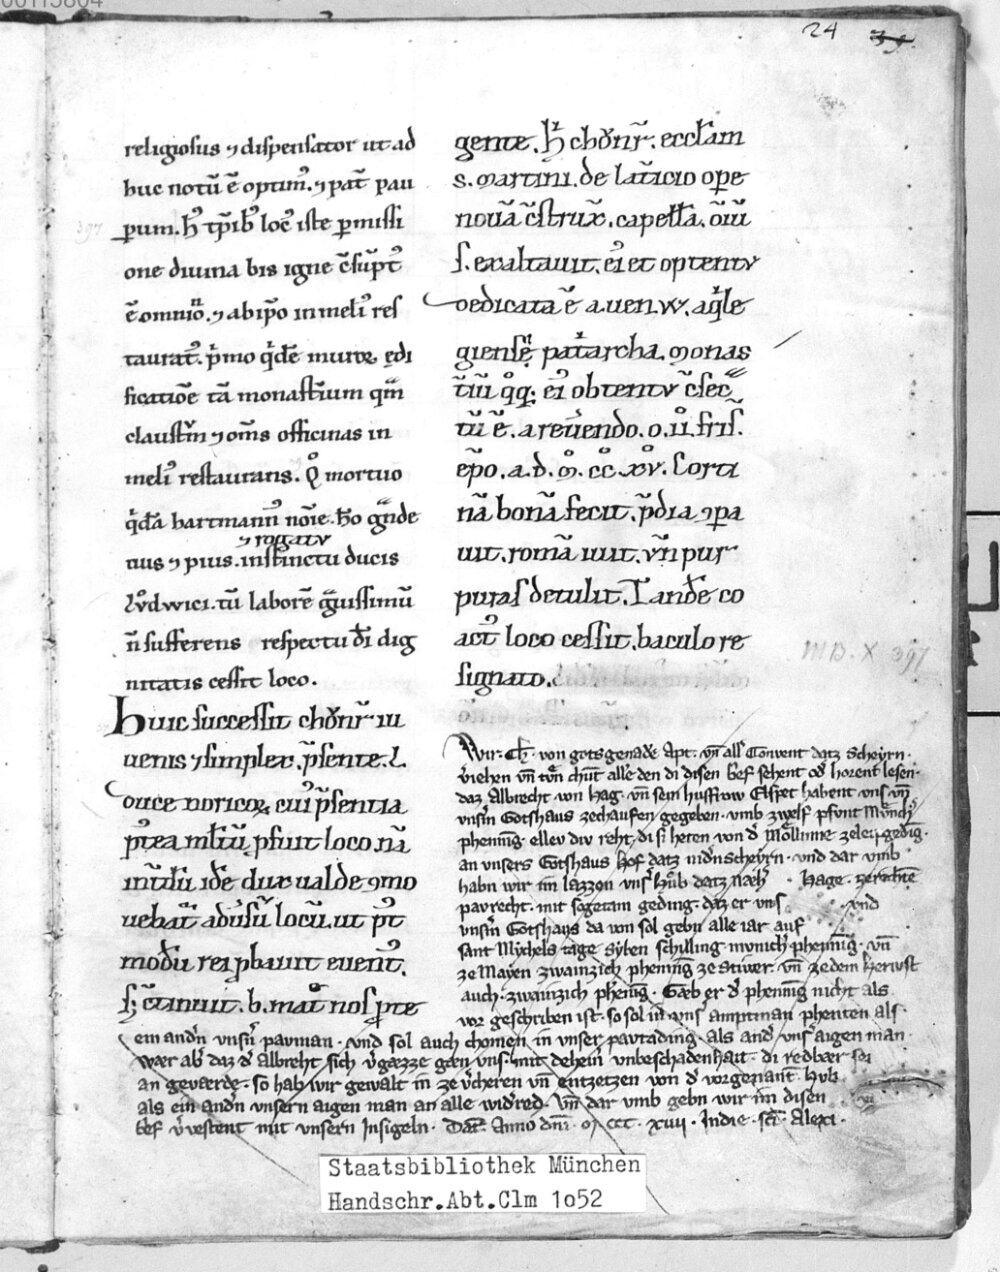 24 39.
religiosus ⁊ dispensator ut ad
huc notū ē optim᷒. ⁊ pat̄ pau
perum. h᷒ tp̄ib᷒ loc᷒ iste p̱missi
one diuina bis igne c̄sūpt᷒
ē omnīo. ⁊ ab ip̄o in meli᷒ res
taurat᷒. p̄mo qͥdē muroꝝ ędi
ficatiōe tā monastīum qm̄
claustr̄m ⁊ om̄s officinas in
meli᷒ restaurans. Qͦ mortuo
qͥdā hartmann᷒ nōie. hō gn̄de
⁊ rogatu
uus ⁊ pius. instinctu ducis
Lvͦdwici. tū laborē gͣuissimū
n̄ sufferens respectu dī dig
nitatis cessit loco.
Huic successit chōnr̄ iu
uenis ⁊ simplex. p̄sente. L.
duce noricoꝝ, cui᷒ p̄sentia
p̄tea ml̄tū ꝓfuit loco. nā
int̄ im̄ idē dux ualde ꝯmo
uebat᷒ aduersū locū. ut p᷒t
modū rei ꝓbauit euent᷒.
s; c̄tinuit. b. mat̄ nos ꝓte
gente. h᷒ chōnr̄. eccl̄am
s. martini. de lat̄icio ope
nouā c̄strux̄. capell̄a. ōiū
s. exaltauit. ei᷒ et optentu
dedicata ē a uen. w. aqͥle
giensę̄ patͥarcha. monas
t̄iū qͦqꝫ ei᷒ obtentu c̄sec
tū ē. a reūendo. o. ii. fris̄.
ep̄o. a. d. m̊. c̊c. xv̊. Corti
nā bonā fecit. p̄dia ꝯpa
uit. romā iuit. vn̄ pur
puras detulit. Tandē co
act᷒ loco cessit. baculo re
signato.
MB. X 397
397
Wir. Ch. von gots genade Apt. vn̄ alls Convent datz Scheyrn.
v̄iehen vn̄ tvn chunt alle den di disen bͤef sehent od᷒ horent lesen.
daz Albrecht von Hag. vn̄ sein husfrow Elspet habent vns vn̄
vnsīn Gotshaus ze chaufen gegeben. vmb zwelf pfunt Mv̊nch᷒
phenning. ellev div reht, di si heten von d᷒ Mo̊llinne ze leipgeding.
an vnsers Gotshaus Hof datz nid᷒n scheyrn. vnd dar vmb
habn wir im lazzen vns᷒ Hůb datz Hage. zerehtē
pavrecht. mit sogetam geding. daz er vns vnd
vnsīn Gotshaus da von sol gebn alle iar auf
sant Mychels tage syben schilling munich᷒ phenning. vn̄
ze Mayen zwainzich phenning ze Stiwer. vn̄ ze dem Herwst
auch. zwainzich phennig. Gæb er d᷒ phenning nicht als
vor geschriben ist. so sol in vns᷒ amptman phenten als.
ein and᷒n vnsīn pavman. vnd sol auch chomen in unser pavtading. als and᷒ vns᷒ aigen man.
wær ab᷒ daz d᷒ Albrecht sich v᷒gæzze gæn vns. mit dehein vnbeschadenhait. di redbær sei
an geværde. so hab wir gewalt in ze v᷒cheren vn̄ entzetzen von d᷒ vorgenant. Hub
als ein and᷒n vnsern aigen man an alle wid᷒red. vn̄ dar vmb gebn wir im disen
bͤef v᷒vestent mit vnsern Insigeln. Dat̄. Anno dn̄i. m̊ ccc. xviii. In die. sc̄i. Alexi.
Staatsbibliothek München
Handschr.Abt.Clm 1o52